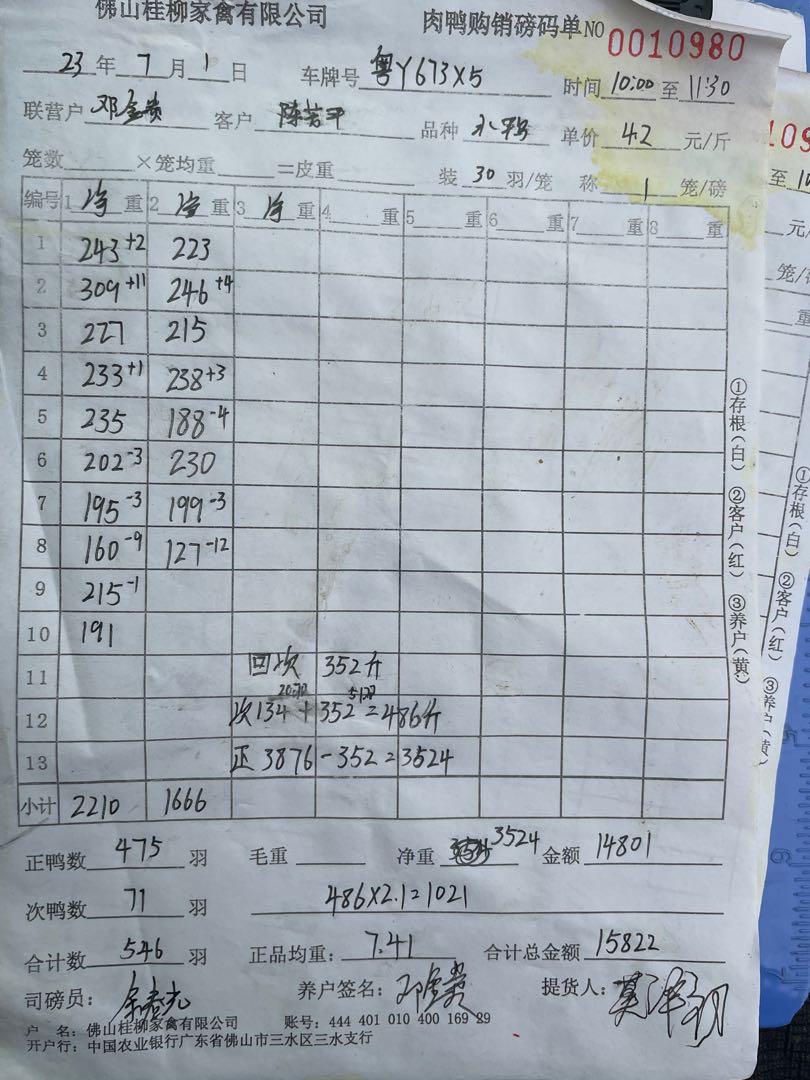 佛山桂柳家禽有限公司 肉鸭购销磅码单 NO 0010980
23 年 7 月 1 日 车牌号 粤Y673X5 时间 10:00 至 11:30
联营户 客户 品种 单价 4.2 元/斤
笼数 ×笼均重 =皮重 装 30 羽/笼 称 1 笼/磅
编号 1 净 重 2 净 重 3 净 重 4 重 5 重 6 重 7 重 8 重
1 243+2 223
2 309+11 246+4
3 227 215
4 233+1 238+3
5 235 188-4
6 202-3 230
7 195-3 199-3
8 160-9 127-12
9 215-1
10 191
11 回次 352斤
20羽 51羽
12 次134+352=486斤
13 正3876-352=3524
小计 2210 1666
正鸭数 475 羽 毛重 净重 3524 金额 14801
次鸭数 71 羽 486×2.1=1021
合计数 546 羽 正品均重: 7.41 合计总金额 15822
司磅员: 养户签名: 提货人:
户 名: 佛山桂柳家禽有限公司 账号: 444 401 010 400 169 29
开户行: 中国农业银行广东省佛山市三水区三水支行
①存根(白) ②客户(红) ③养户(黄)
109
至 10
元/
笼/
重
①存根(白) ②客户(红) ③养户(黄)